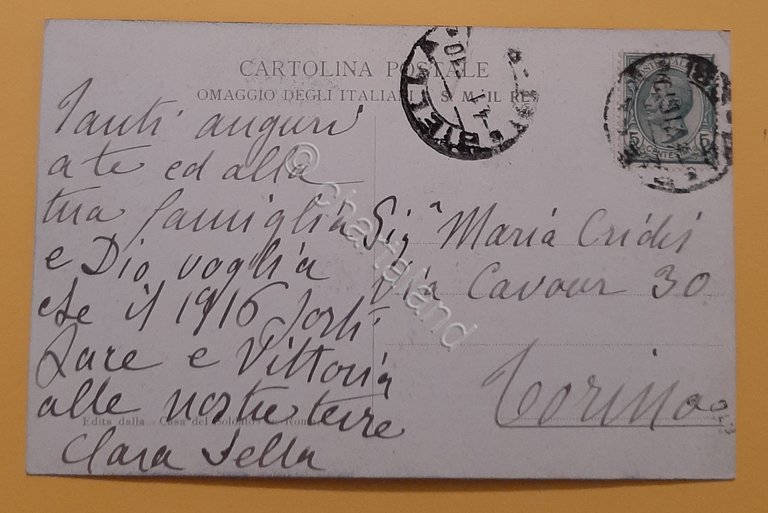 CARTOLINA POSTALE
OMAGGIO DEGLI ITALIANI A S. M. IL RE
Tanti auguri
a te ed alla
tua famiglia
e Dio voglia
che il 1916 porti
Pace e Vittoria
alle nostre terre
Clara Sella
Edita dalla Casa del Soldato Roma
BIELLA
Sigª Maria Cridis
Via Cavour 30
Torino
POSTE ITALIANE
5 CENTES 5
© chartaland